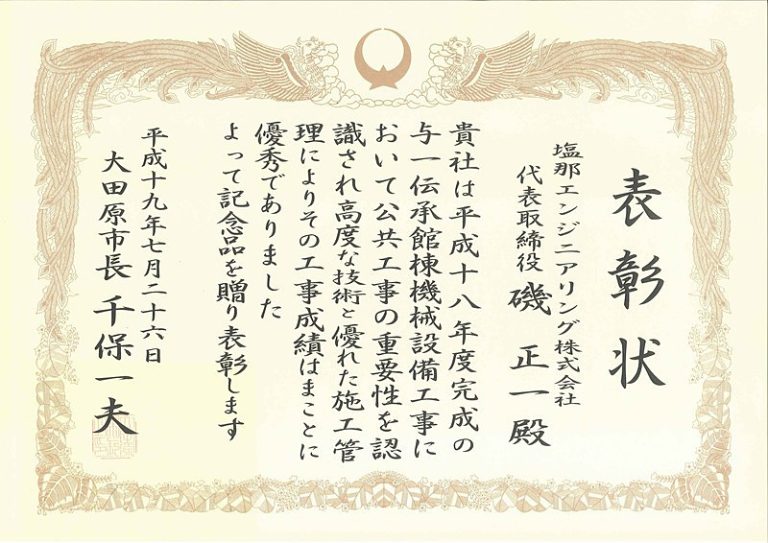 表彰状
塩那エンジニアリング株式会社
代表取締役 磯正一殿
貴社は平成十八年度完成の
与一伝承館棟機械設備工事に
おいて公共工事の重要性を認
識され高度な技術と優れた施工管
理によりその工事成績はまことに
優秀でありました
よって記念品を贈り表彰します
平成十九年七月二十六日
大田原市長 千保一夫